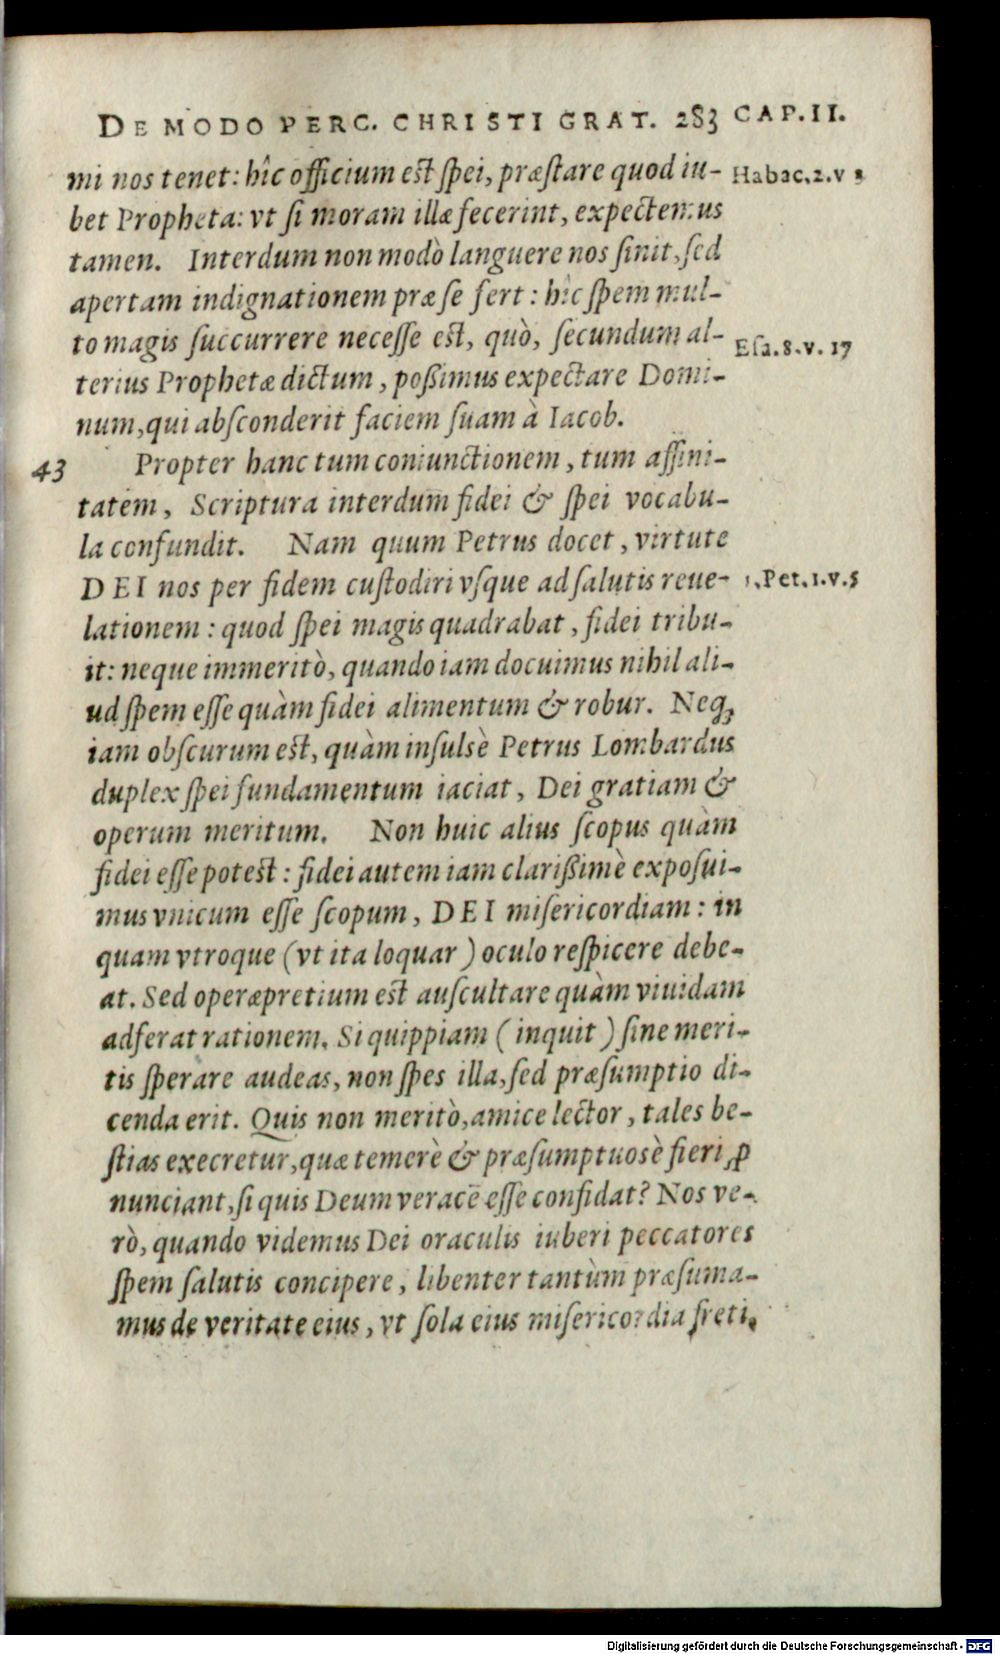 DE MODO PERC. CHRISTI GRAT. 283 CAP. II.
mi nos tenet: hîc officium est spei, præstare quod iu- Habac. 2. v 3
bet Propheta: vt si moram illæ fecerint, expectemus
tamen. Interdum non modò languere nos sinit, sed
apertam indignationem præ se fert: hîc spem mul-
to magis succurrere necesse est, quò, secundum al- Esa. 8. v. 17
terius Prophetæ dictum, possimus expectare Domi-
num, qui absconderit faciem suam à Iacob.
43 Propter hanc tum coniunctionem, tum affini-
tatem, Scriptura interdum fidei & spei vocabu-
la confundit. Nam quum Petrus docet, virtute
DEI nos per fidem custodiri vsque ad salutis reue- 1. Pet. 1. v. 5
lationem: quod spei magis quadrabat, fidei tribu-
it: neque immeritò, quando iam docuimus nihil ali-
ud spem esse quàm fidei alimentum & robur. Neq;
iam obscurum est, quàm insulsè Petrus Lombardus
duplex spei fundamentum iaciat, Dei gratiam &
operum meritum. Non huic alius scopus quàm
fidei esse potest: fidei autem iam clarissimè exposui-
mus vnicum esse scopum, DEI misericordiam: in
quam vtroque (vt ita loquar) oculo respicere debe-
at. Sed operæpretium est auscultare quàm viuidam
adferat rationem. Si quippiam (inquit) sine meri-
tis sperare audeas, non spes illa, sed præsumptio di-
cenda erit. Quis non meritò, amice lector, tales be-
stias execretur, quæ temerè & præsumptuosè fieri ꝓ
nunciant, si quis Deum veracē esse confidat? Nos ve-
rò, quando videmus Dei oraculis iuberi peccatores
spem salutis concipere, libenter tantùm præsuma-
mus de veritate eius, vt sola eius misericordia freti,
Digitalisierung gefördert durch die Deutsche Forschungsgemeinschaft - DFG